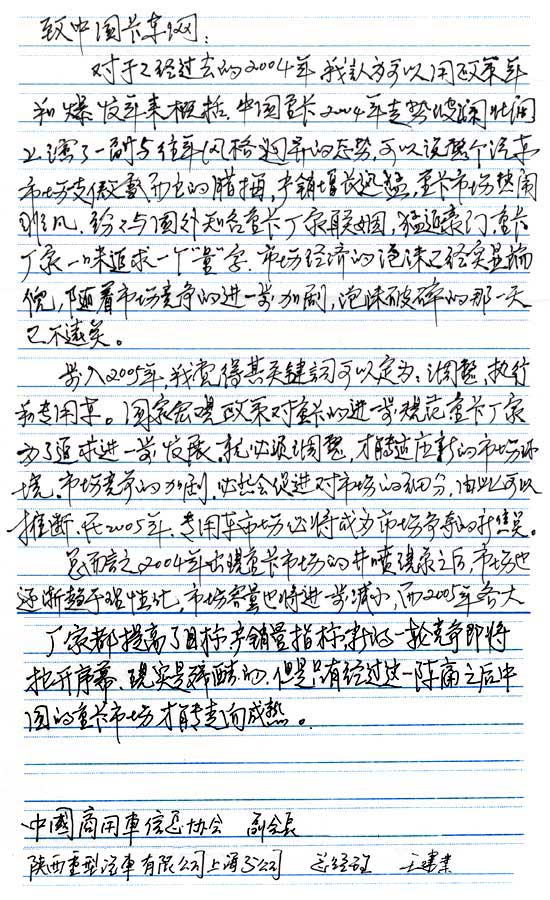 致中国卡车网：
对于已经过去的2004年我认为可以用政策年
和爆发年来概括．中国重卡2004年走势波澜壮阔
上演了一副与往年风格迥异的态势，可以说整个汽车
市场支撑是重卡的腊梅，产销增长迅猛，重卡市场热闹
非凡．纷纷与国外知名重卡厂家联姻，猛追豪门，重卡
厂家一味追求一个"量"字．市场经济的泡沫已经实显端
倪，随着市场竞争的进一步加剧，泡沫破碎的那一天
已不远矣。
步入2005年，我觉得其关键词可以定为：调整、执行
和专用车。国家宏观政策对重卡的进一步规范重卡厂家
为了追求进一步发展．就必须调整，才能适应新的市场环
境．市场竞争的加剧．必然会促进对市场的细分，由此可以
推断．在2005年．专用车市场必将成为市场争夺的新焦点。
总而言之2004年出现重卡市场的井喷现象之后，市场也
逐渐趋于理性化，市场容量也将进一步减小，而2005年各大
厂家都提高了目标产销量指标，新的一轮竞争即将
拉开序幕．现实是残酷的．但是只有经过这一阵痛之后中
国的重卡市场才能走向成熟。
中國商用車信息协会 副会長
陕西重型汽車有限公司上海分公司 总经理 王建業